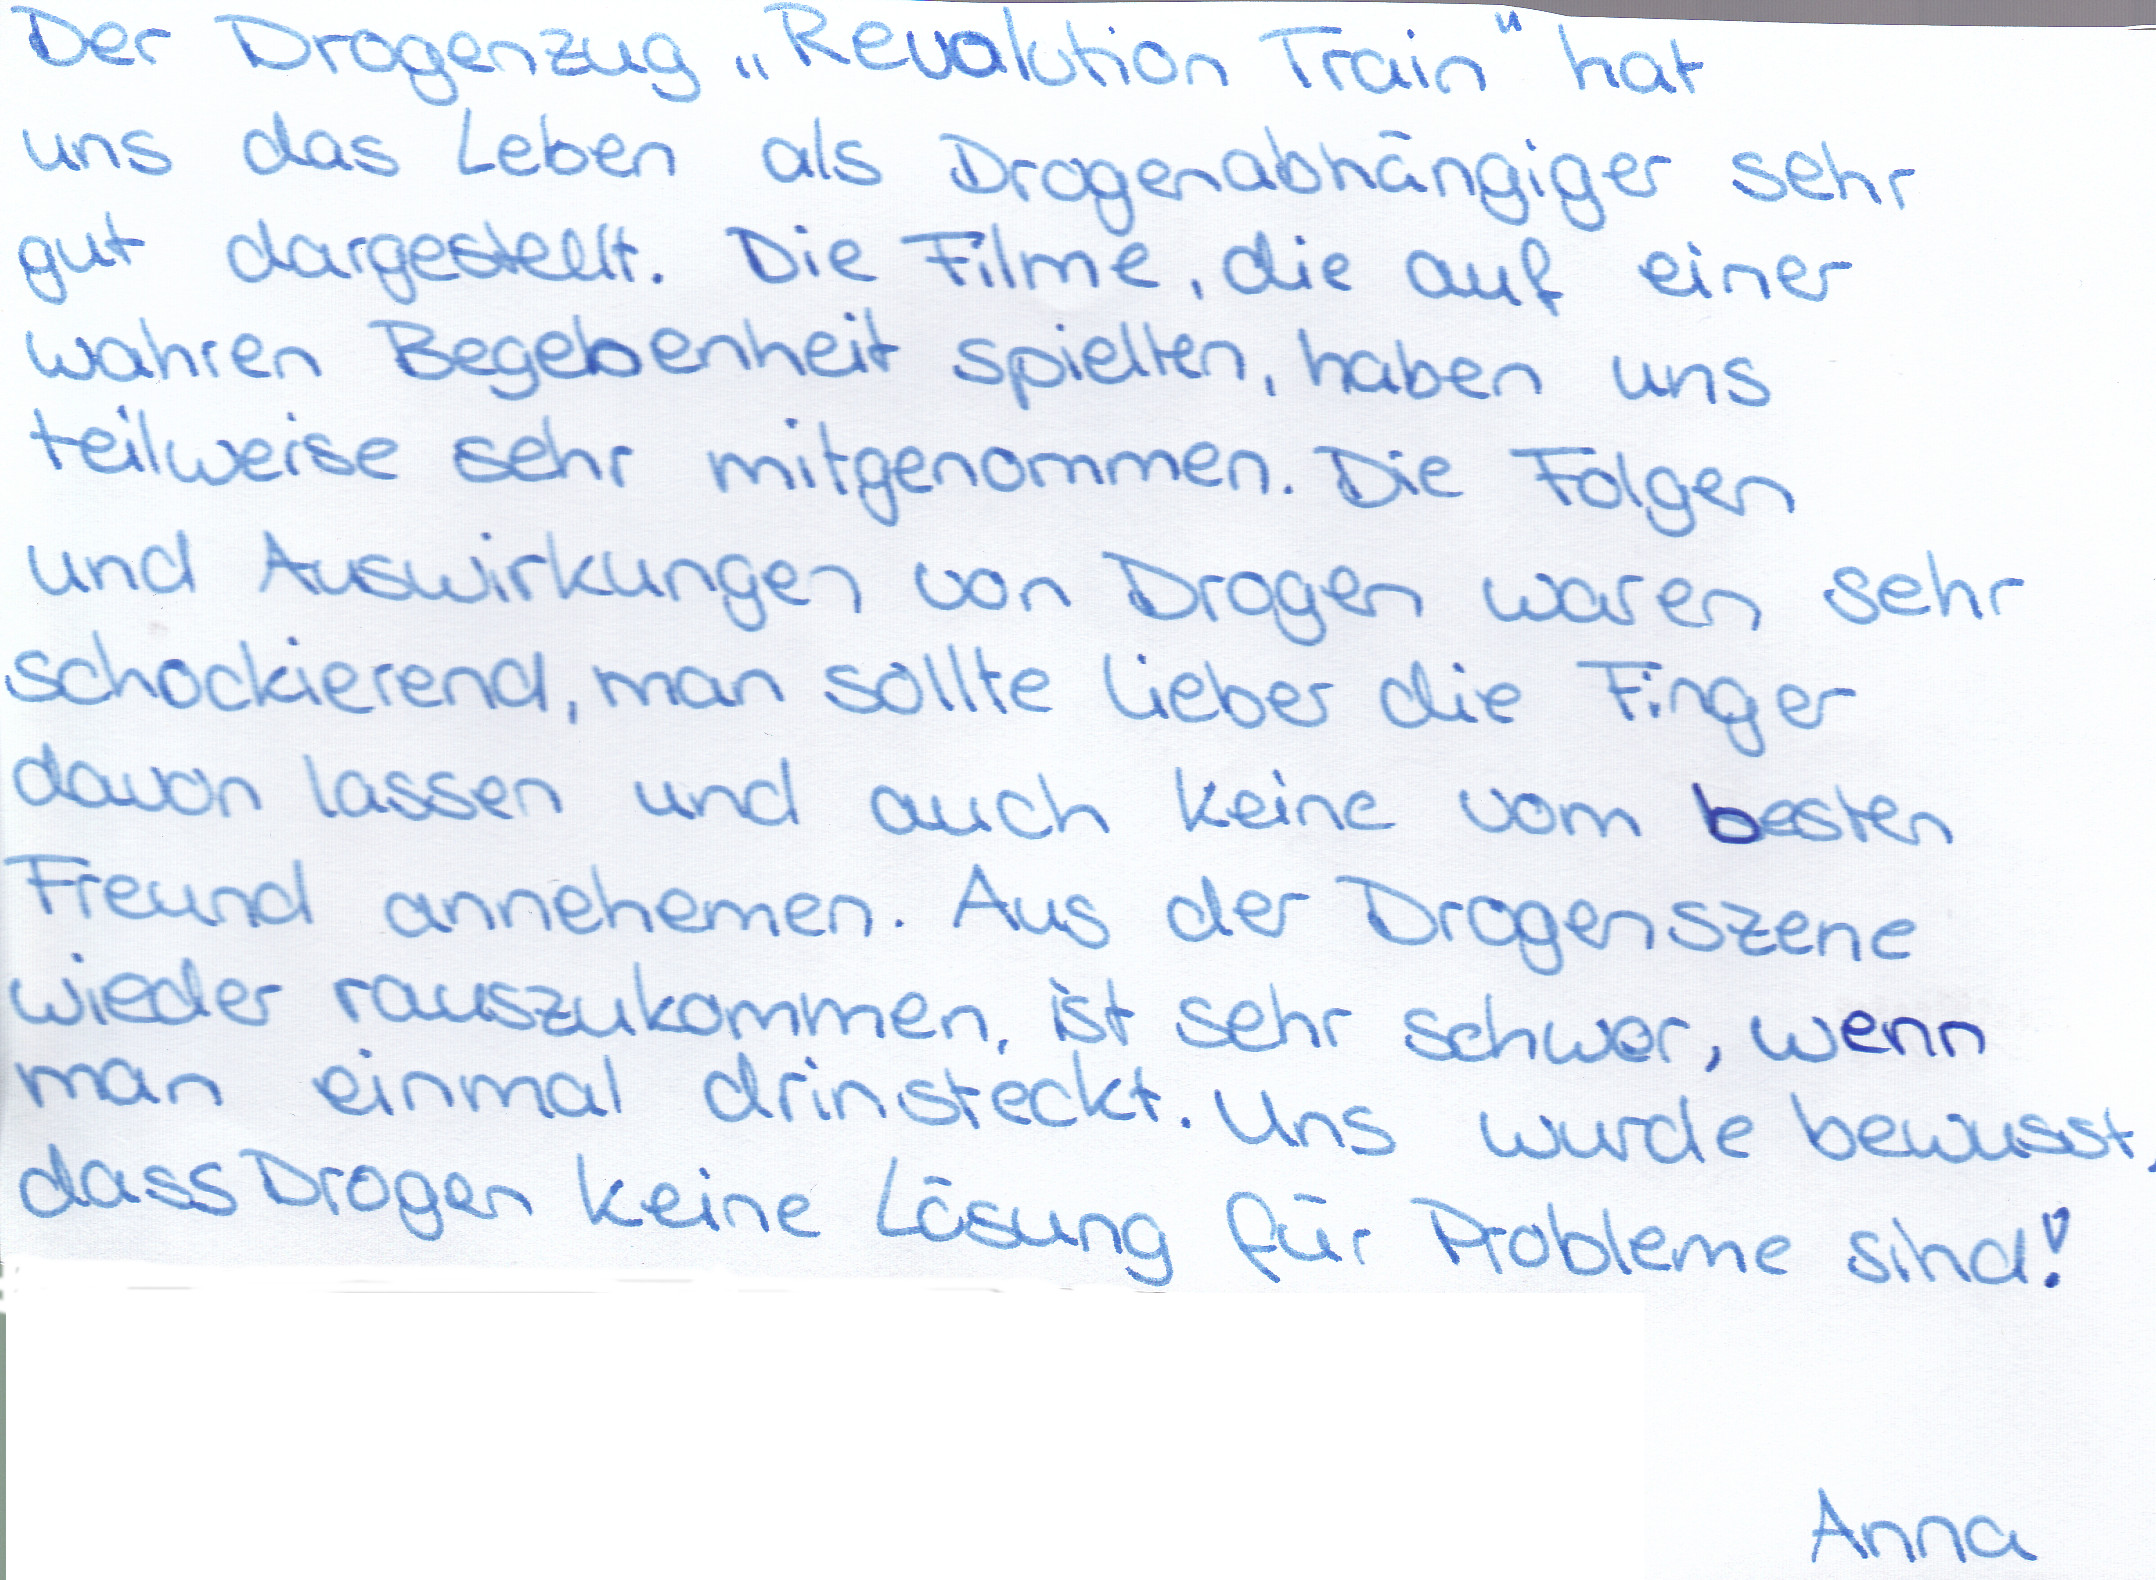 Der Drogenzug „Revolution Train" hat
uns das Leben als Drogenabhängiger sehr
gut dargestellt. Die Filme, die auf einer
wahren Begebenheit spielten, haben uns
teilweise sehr mitgenommen. Die Folgen
und Auswirkungen von Drogen waren sehr
schockierend, man sollte lieber die Finger
davon lassen und auch keine vom besten
Freund annehemen. Aus der Drogenszene
wieder rauszukommen, ist sehr schwer, wenn
man einmal drinsteckt. Uns wurde bewusst,
dass Drogen keine Lösung für Probleme sind!
Anna